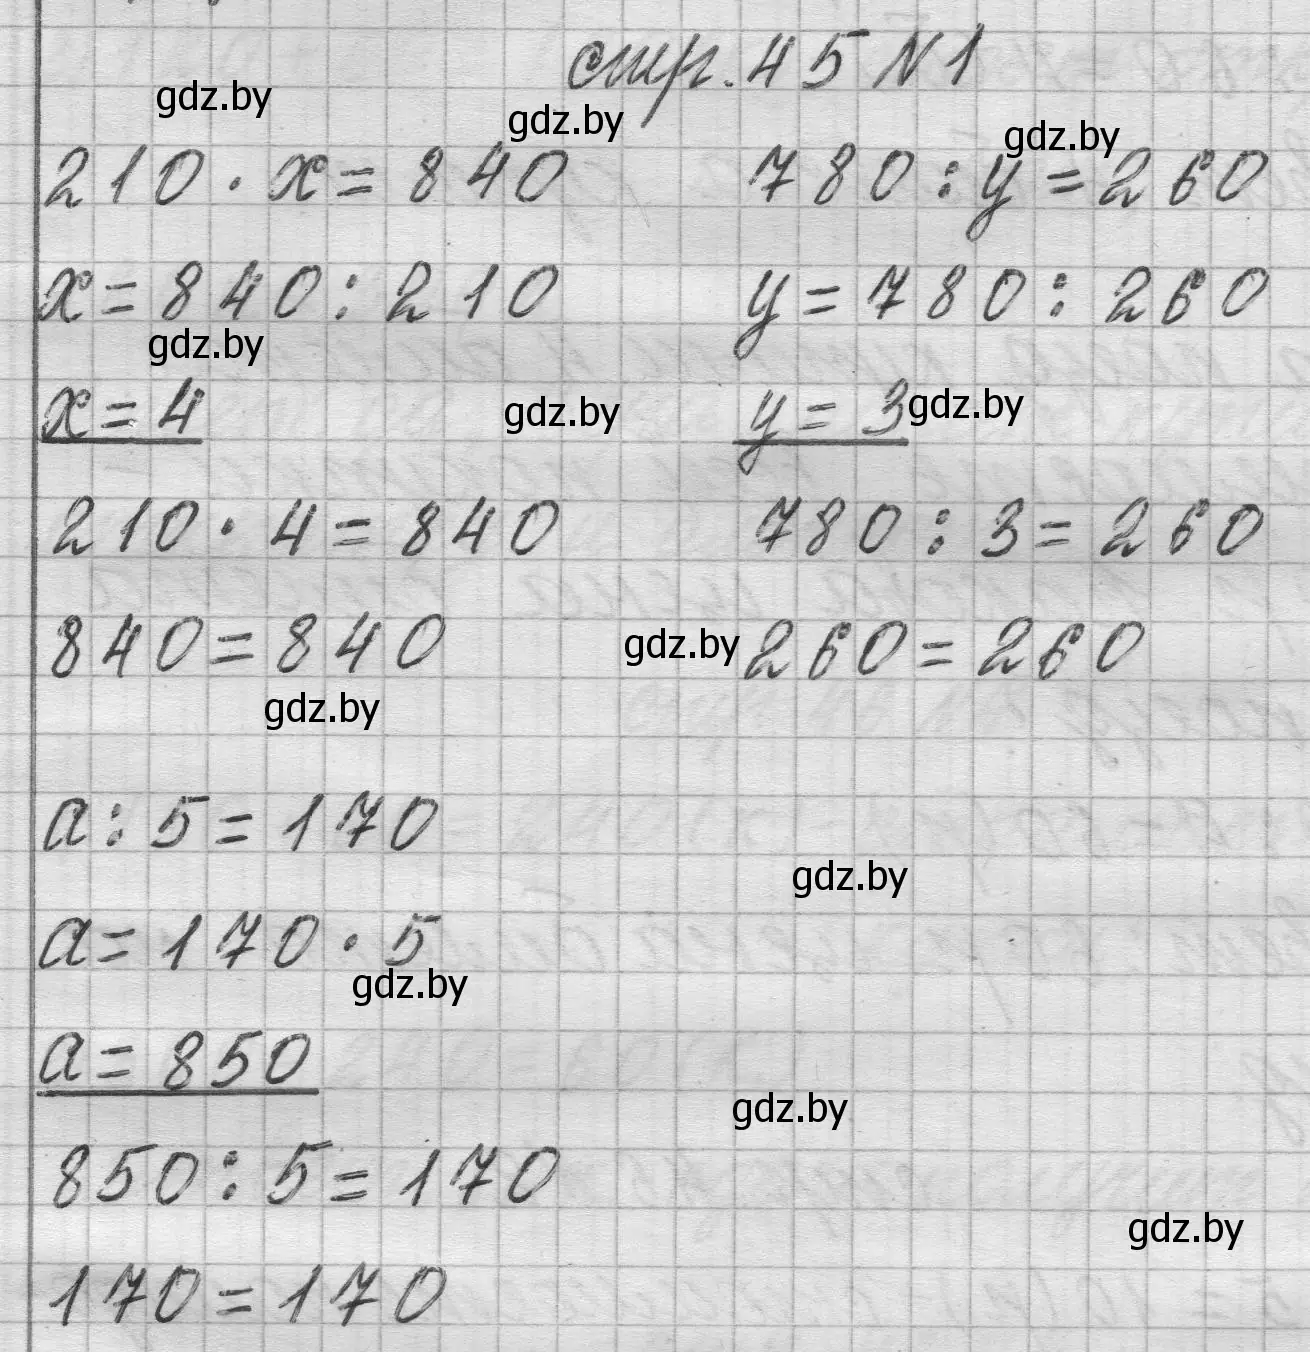 стр. 45 N 1
gdz.by
gdz.by
gdz.by
210 · x = 840
780 : y = 260
x = 840 : 210
y = 780 : 260
gdz.by
x = 4
gdz.by
y = 3
gdz.by
210 · 4 = 840
780 : 3 = 260
840 = 840
gdz.by
260 = 260
gdz.by
a : 5 = 170
gdz.by
a = 170 · 5
gdz.by
a = 850
gdz.by
850 : 5 = 170
gdz.by
170 = 170